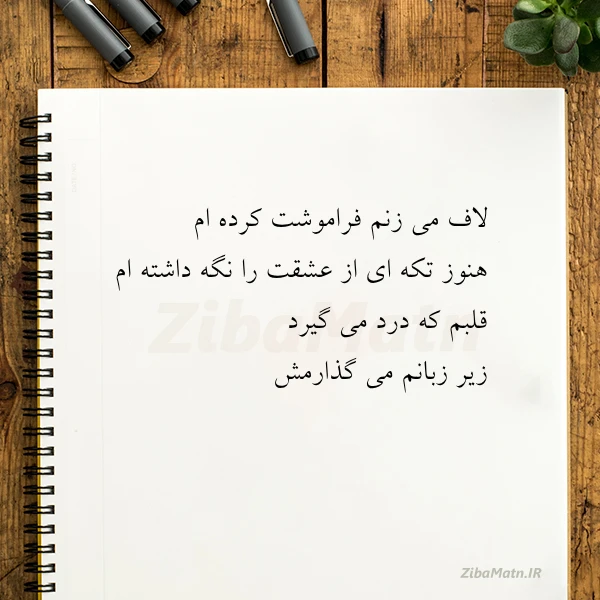 لاف می زنم فراموشت کرده ام
هنوز تکه ای از عشقت را نگه داشته ام
قلبم که درد می گیرد
زیر زبانم می گذارمش
ZibaMatn
ZibaMatn.IR